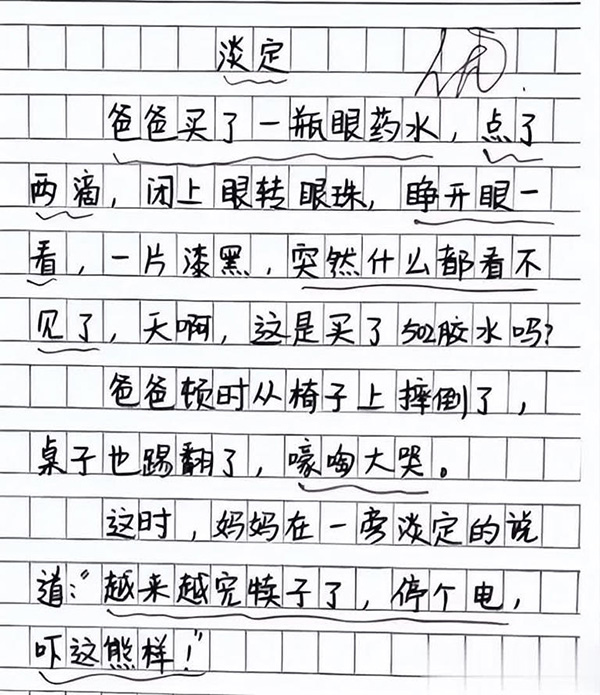 淡定
优
爸爸买了一瓶眼药水，点了
两滴，闭上眼转眼珠，睁开眼一
看，一片漆黑，突然什么都看不
见了，天啊，这是买了502胶水吗？
爸爸顿时从椅子上摔倒了，
桌子也踢翻了，嚎啕大哭。
这时，妈妈在一旁淡定的说
道：“越来越完犊子了，停个电，
吓这熊样！”